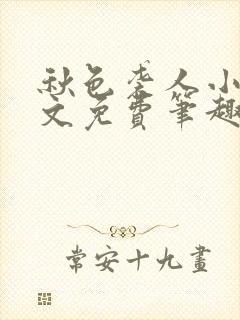 秋色老人小
文免費筆趣
常安十九畫